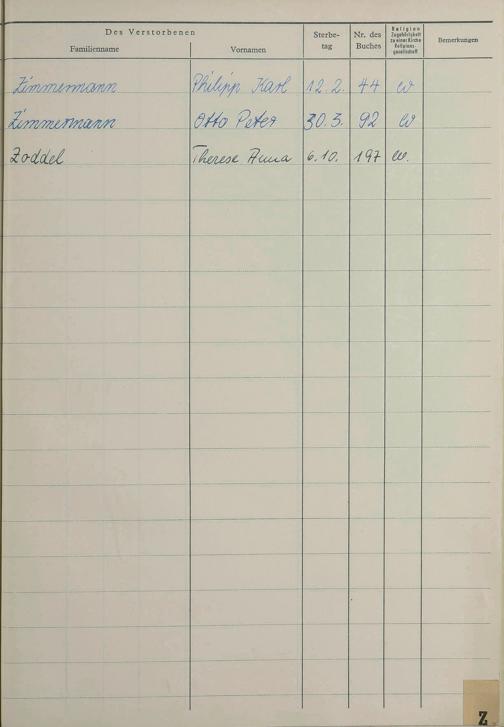 Des Verstorbenen
Familienname Vornamen Sterbe-tag Nr. des Buches Religion Zugehörigkeit zu einer Kirche Religions-gesellschaft Bemerkungen
Zimmermann Philipp Karl 12.2. 44 ev
Zimmermann Otto Peter 30.3. 92 ev
Zoddel Therese Anna 6.10. 197 ev.
Z